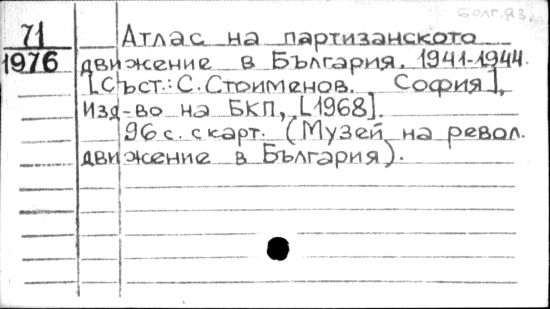 Болг.яз.
71
1976
Атлас на партизанското
движение в България. 1941-1944.
[Съст.: С. Стоименов. София],
Изд-во на БКП, [1968].
96 с. с карт. (Музей на револ.
движение в България).